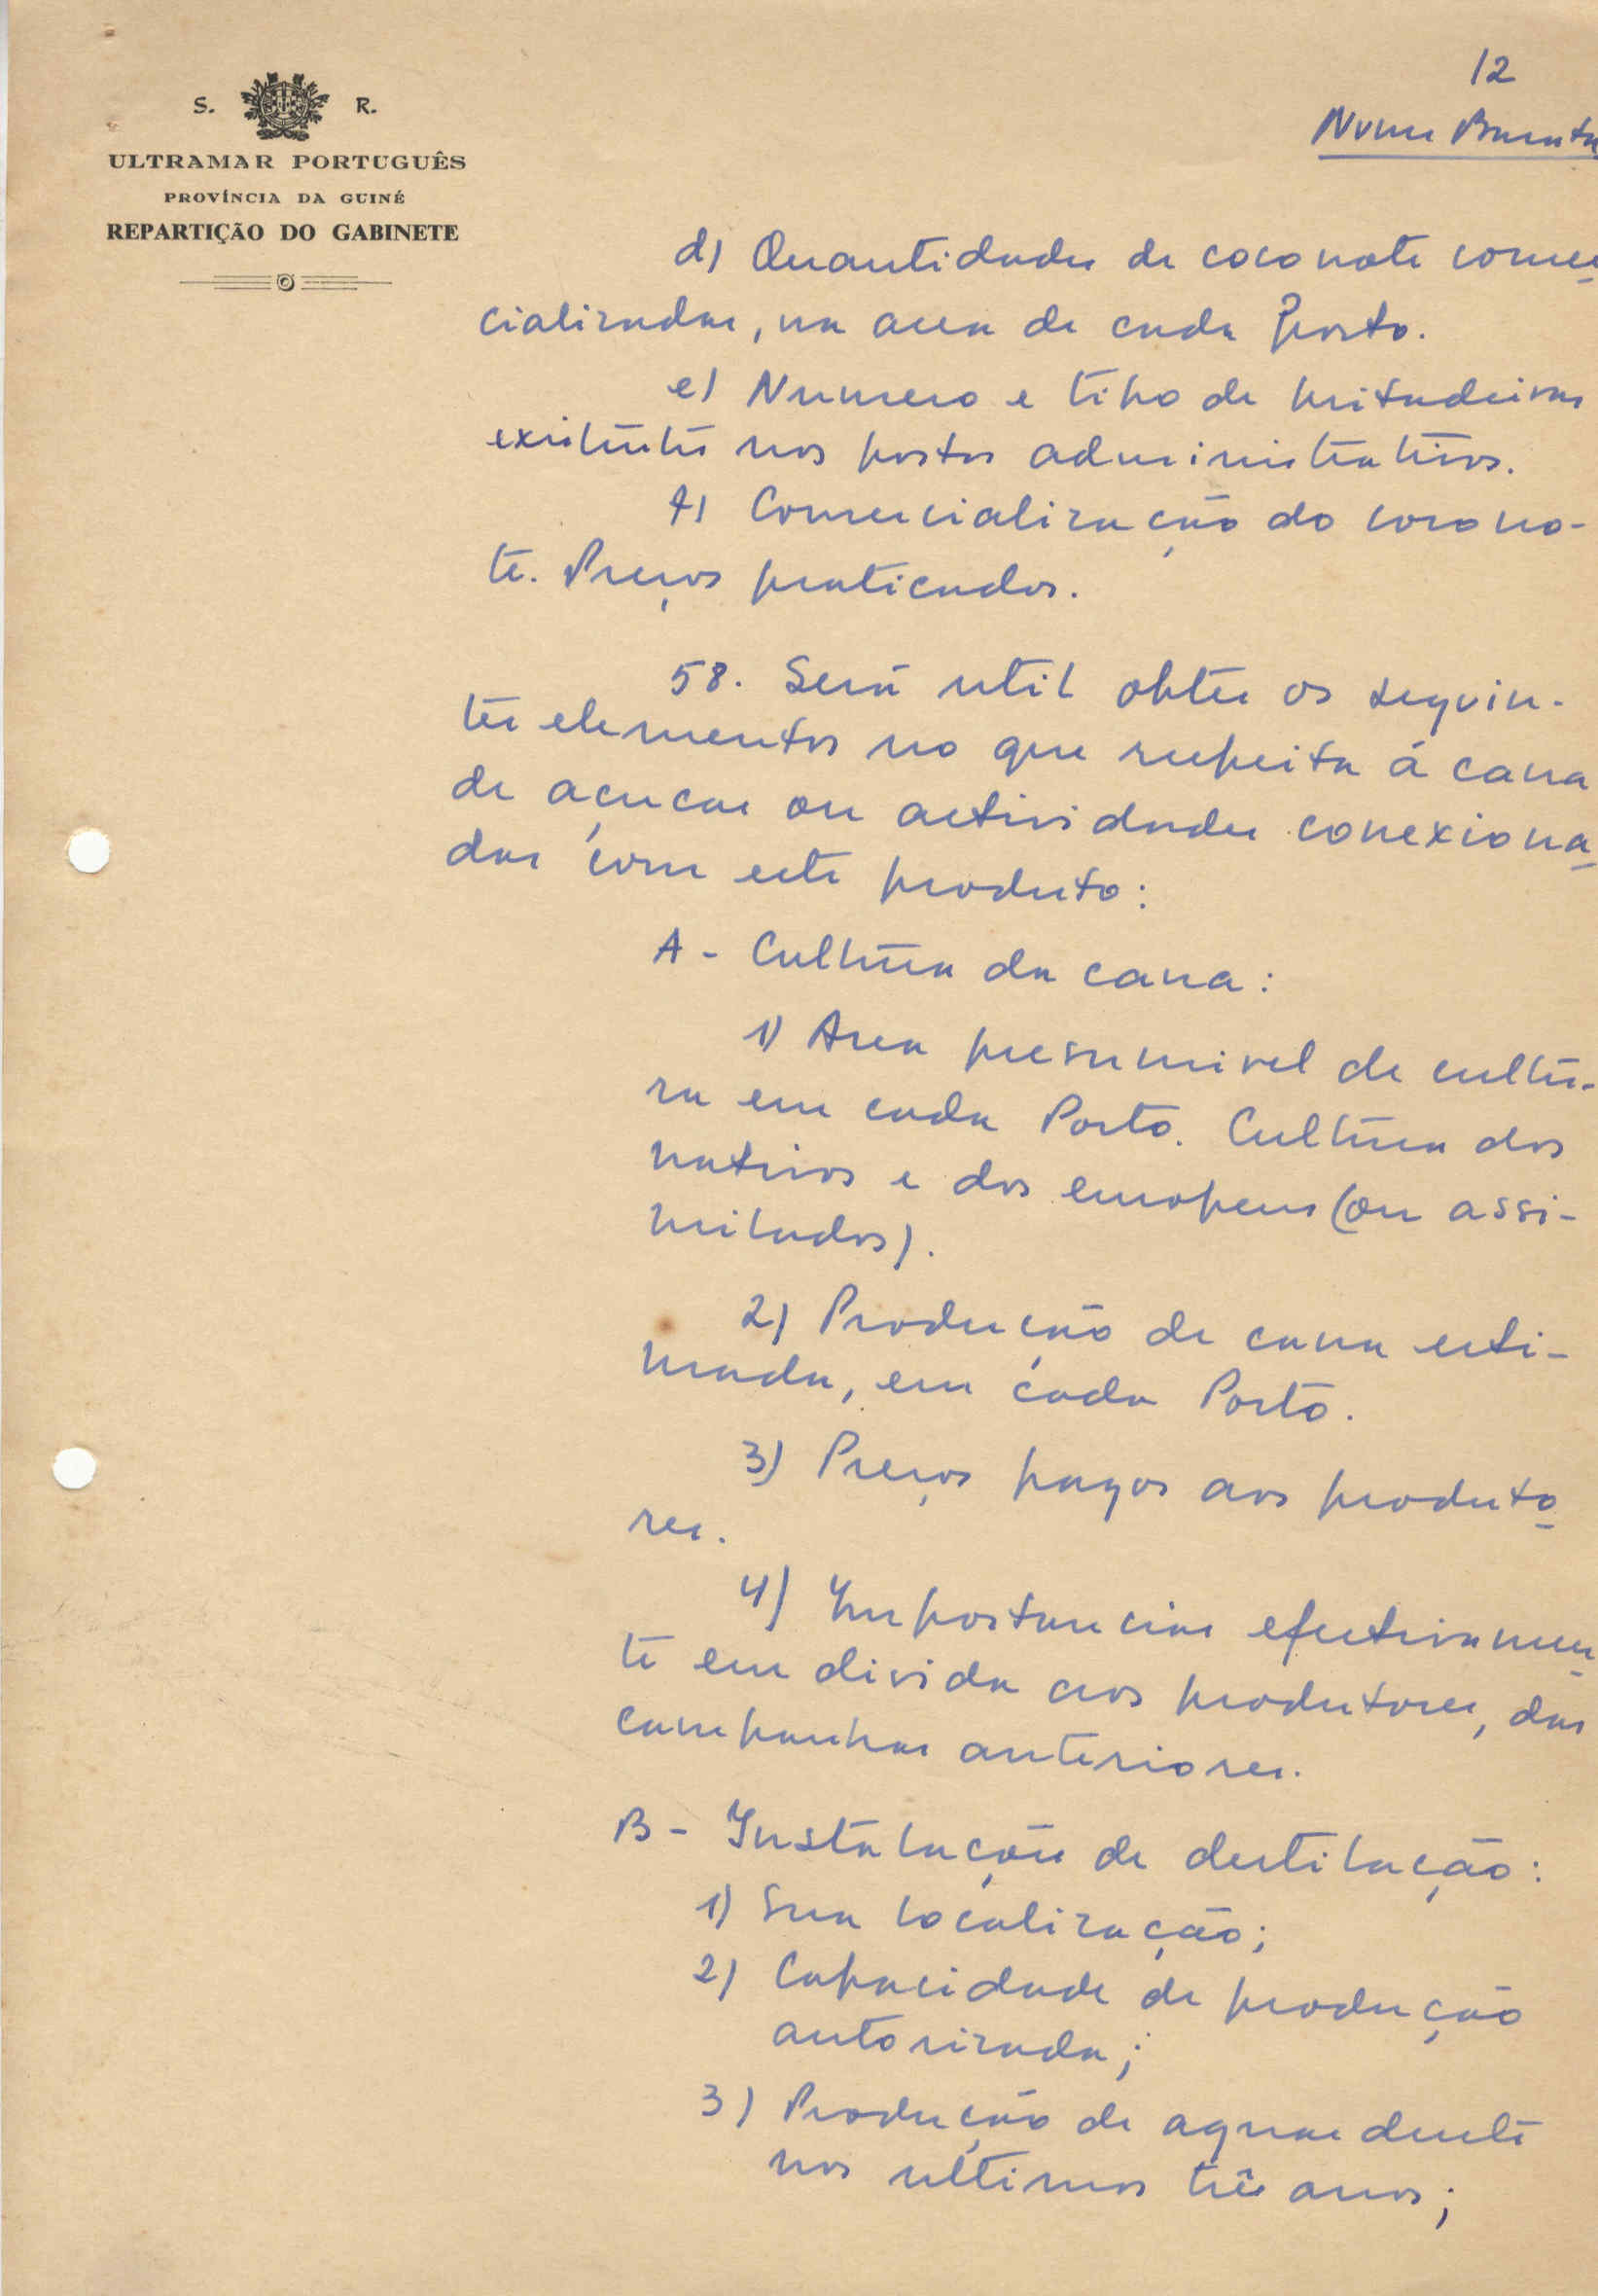 12
S. R.
ULTRAMAR PORTUGUÊS
PROVÍNCIA DA GUINÉ
REPARTIÇÃO DO GABINETE
d) Quantidades de coconote comer
cializadas, na area de cada Posto.
e) Numero e tipo de britadeiras
existentes nos postos administrativos.
f) Comercialização do corono-
te. Preços praticados.
58. Será util obter os seguin-
tes elementos no que respeita á cana
de açucar ou actividades conexiona
das com este produto:
A - Cultura da cana:
1) Area presumivel de cultu-
ra em cada Posto. Cultura dos
nativos e dos europeus (ou assi-
milados).
2) Produção de cana esti-
mada, em cada Posto.
3) Preços pagos aos produto
res.
4) Importancias efectivamen
te em divida aos produtores, das
campanhas anteriores.
B - Instalações de destilação:
1) Sua localização;
2) Capacidade de produção
autorizada;
3) Produção de aguardente
nos ultimos três anos;